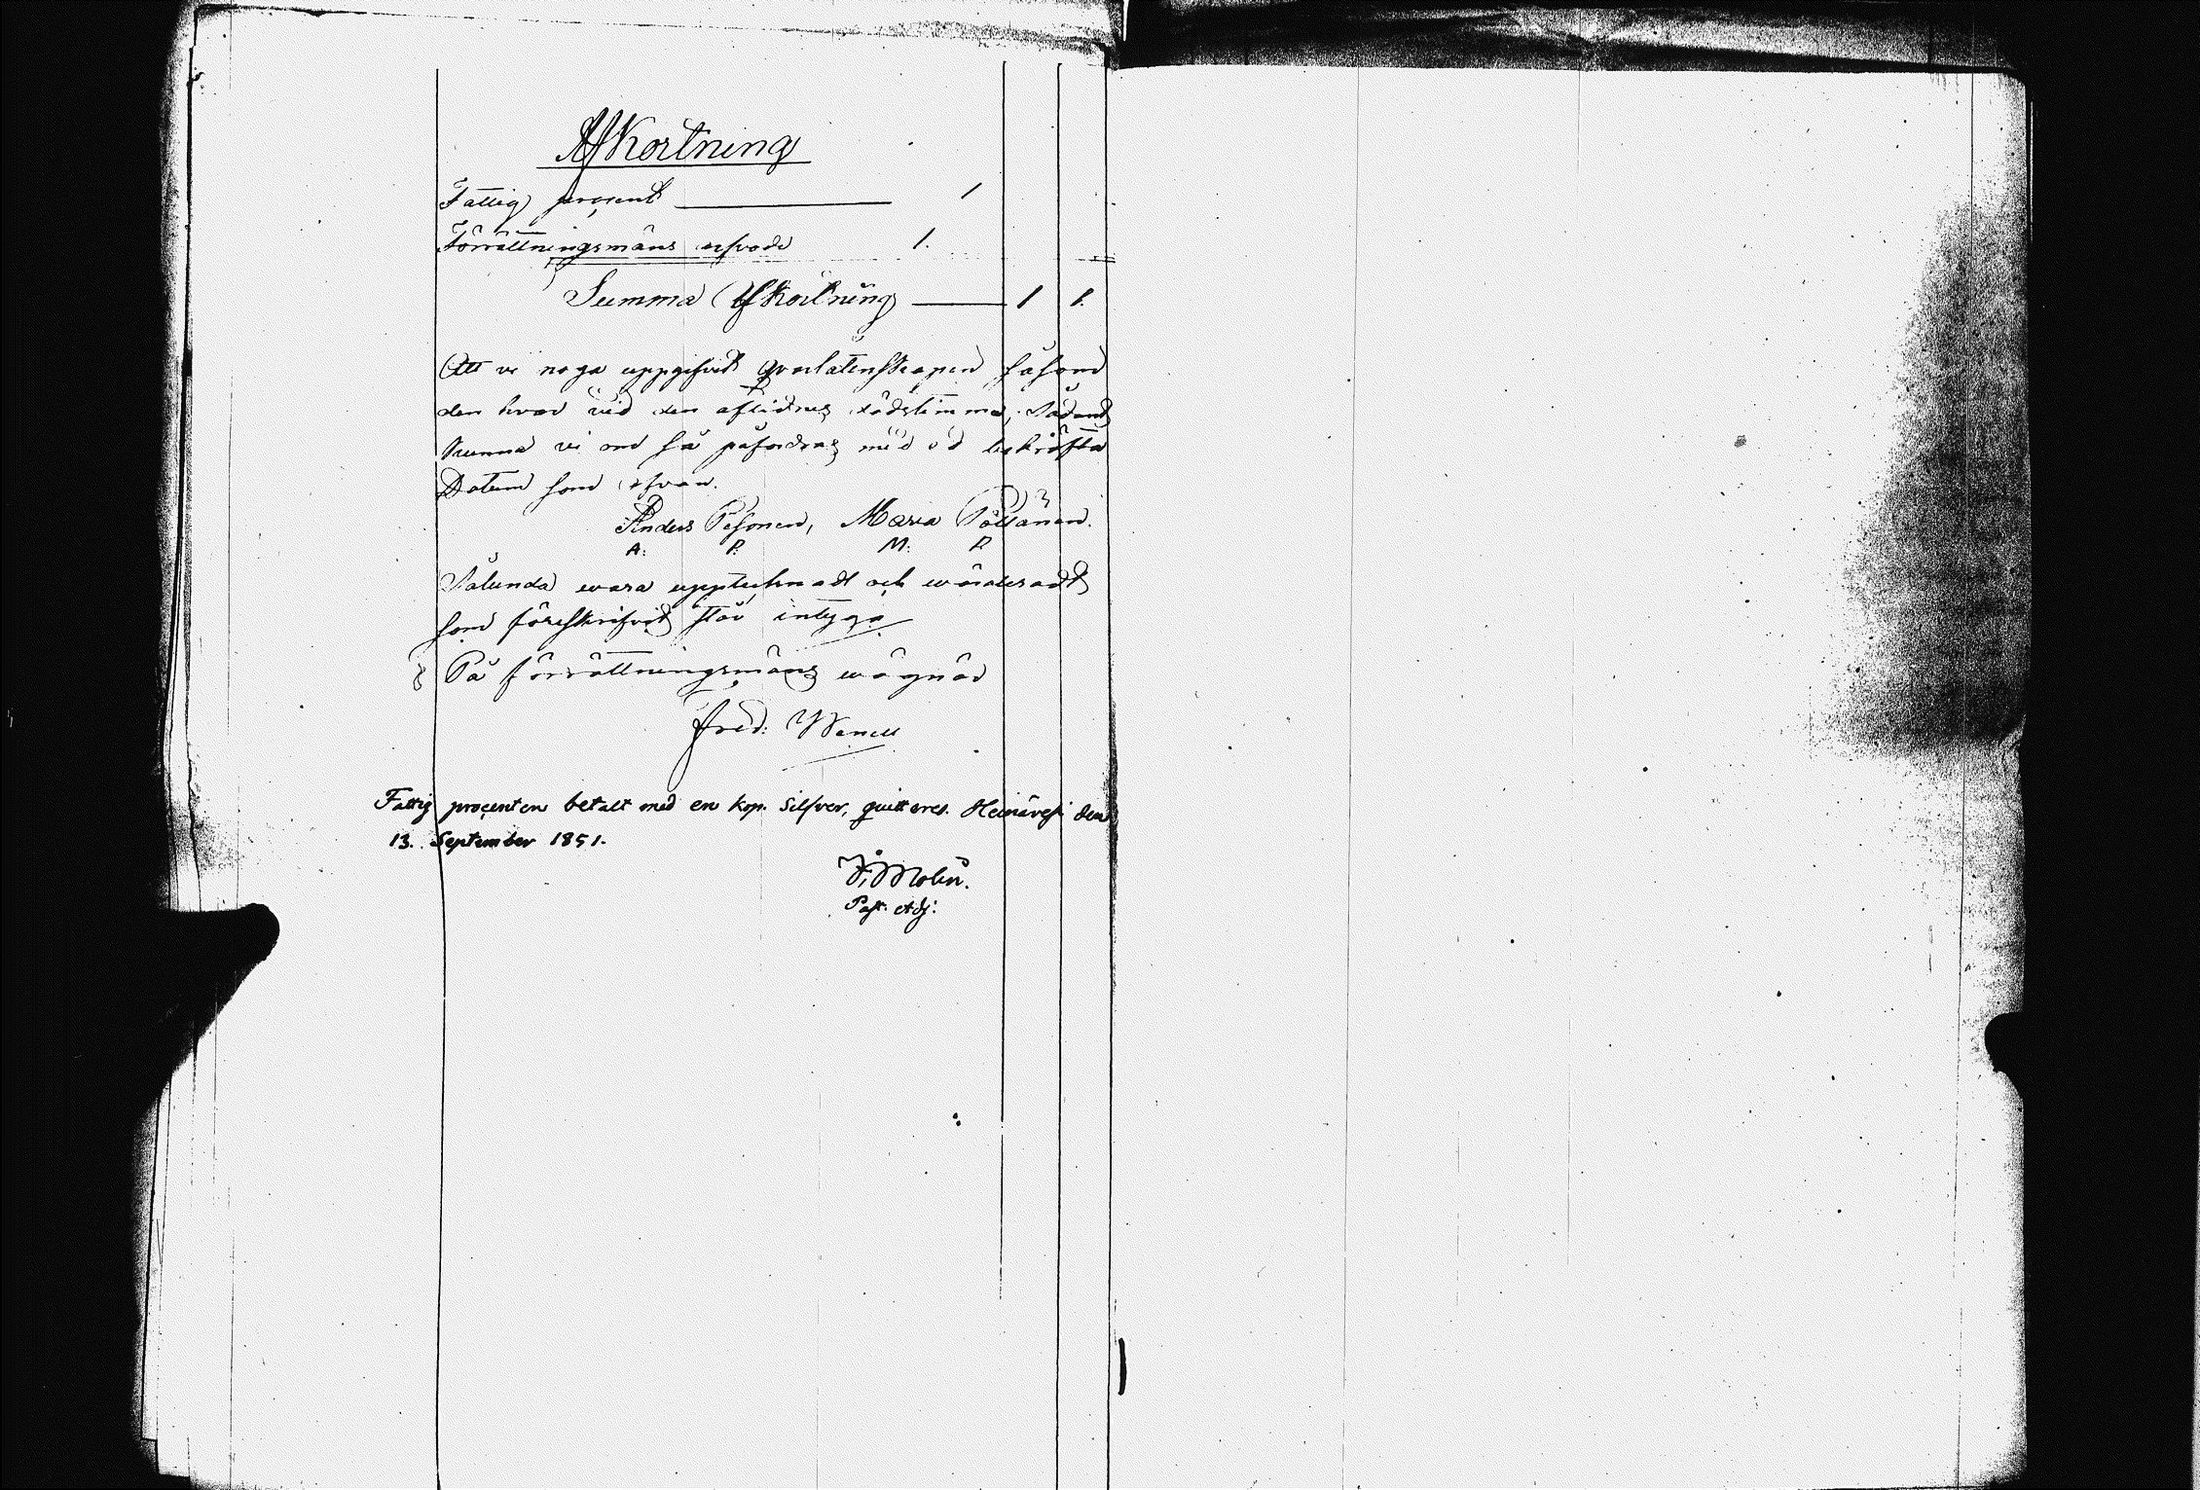 Afkortning
Fattig procent — 1
Förrättningsmäns arfvode 1.
Summa Afkortning — 1 1.
Att vi noga uppgifvit qvarlåtenskapen såsom
den hvar vid den aflidnes dödstimma, sådant
kunna vi om så påfordras med ed bekräfta
Datum som ofvan.
Anders Pesonen, Maria Pöllänen.
A: P: M: P.
Sålunda wara upptecknadt och wärderadt
som föreskrifvit står intyga
På förrättningsmäns wägnar
Fred: Wenell
Fattig procenten betalt med en kop. Silfver, quitteres. Heinävesi den
13. September 1851.
Molin.
Past. Adj: